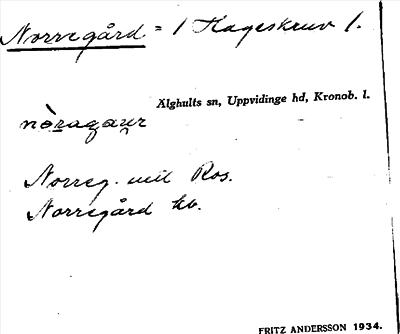 Norregård = 1 Hageskruv 1.
Älghults sn, Uppvidinge hd, Kronob. l.
Norreg. mil Ros.
Norregård kb.
FRITZ ANDERSSON 1934.